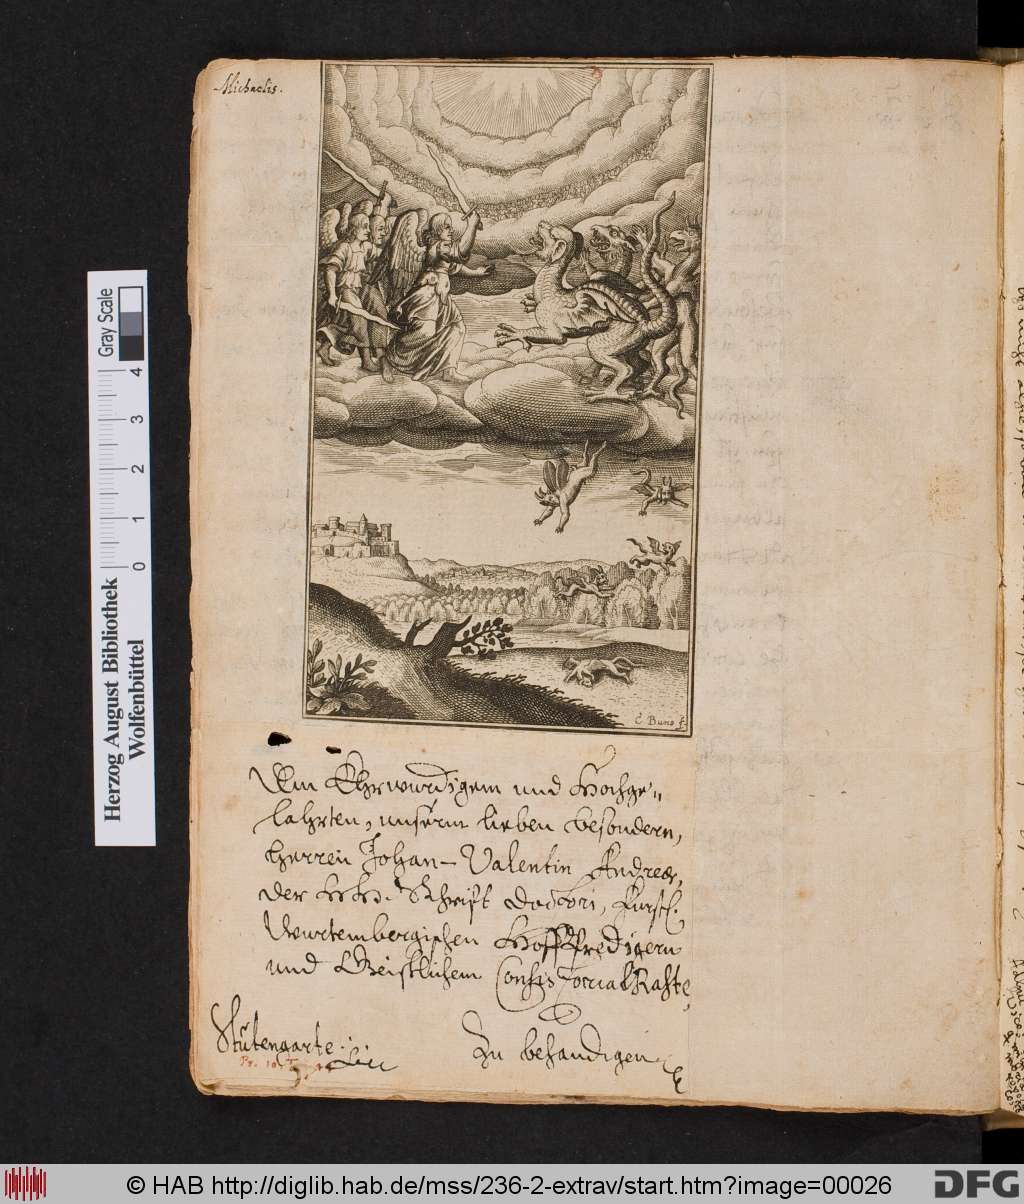 Michaelis.
C Buno f.
Dem Ehrwurdigem und Hochge„
lahrten, unserm lieben besondern,
Herren Johan Valentin Andreæ,
der HH. Schrift Doctori, Furstl.
Wurtembergischen HoffPredigern
und Geistlichem ConsistorialRahte,
Zu behändigen
Stutengarte.
Gray Scale
4
3
2
1
0
Herzog August Bibliothek
Wolfenbüttel
© HAB http://diglib.hab.de/mss/236-2-extrav/start.htm?image=00026
DFG